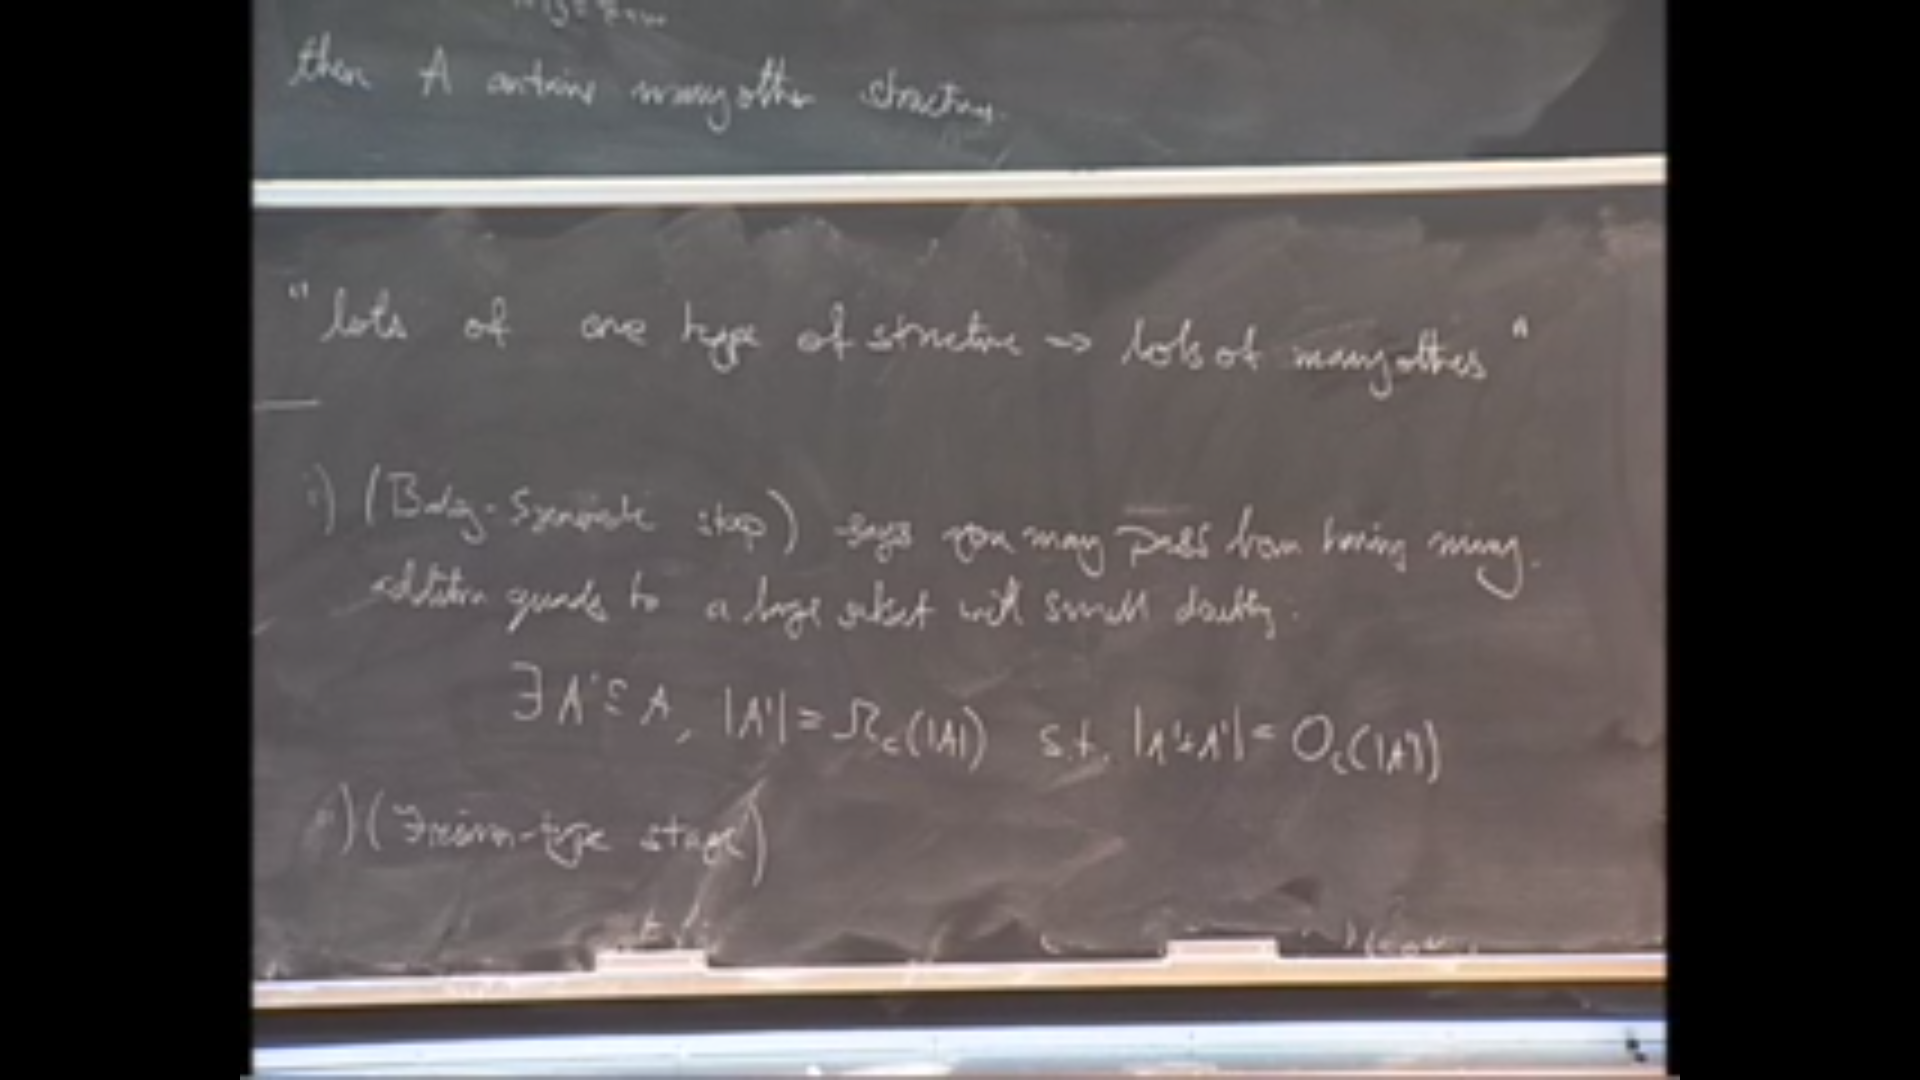 then A contains many other structures.
" lots of one type of structure ⇒ lots of many others "
i) (Balog-Szemerédi step) says you may pass from having many
additive quads to a large subset with small doubling.
∃ A' ⊆ A, |A'| = Ω_c(|A|) s.t. |A'+A'| = O_c(|A'|)
ii) (Freiman-type stage)